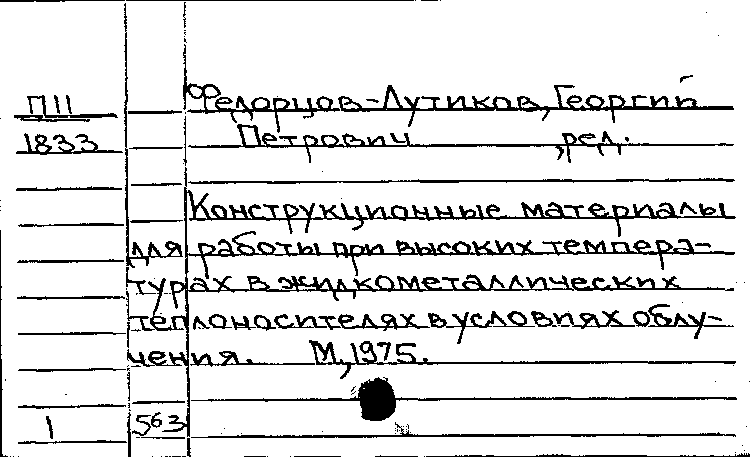 П11 Федорцов-Лутиков, Георгий
1833 Петрович, ред.
Конструкционные материалы
для работы при высоких темпера-
турах в жидкометаллических
теплоносителях в условиях облу-
чения. М, 1975.
1 563